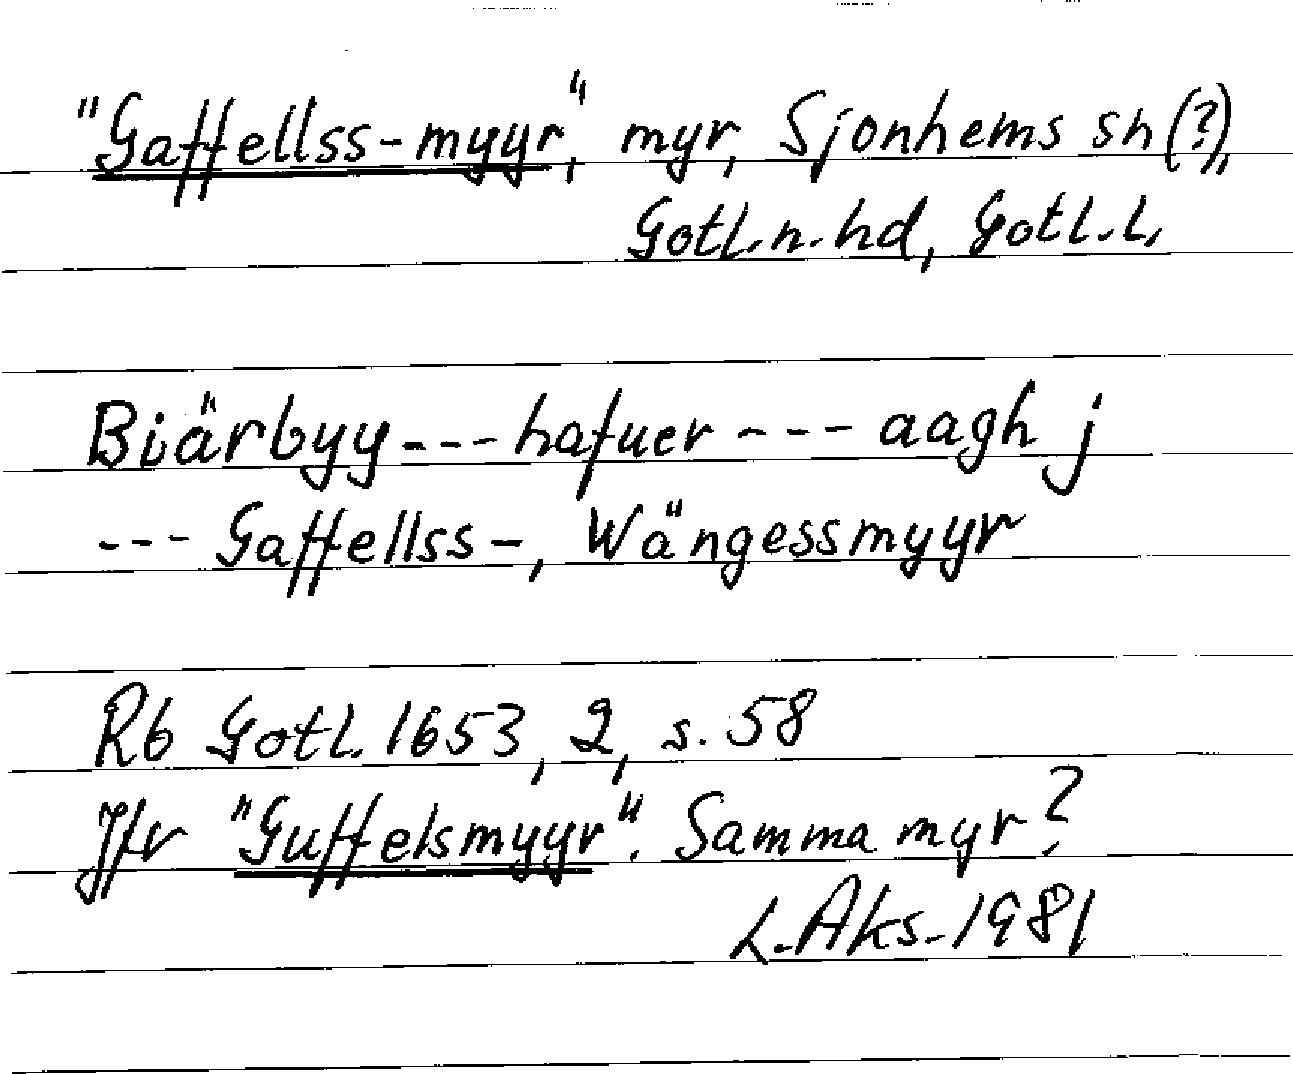 "Gaffellss-myyr," myr, Sjonhems sn(?),
Gotl.n.hd, Gotl.l.
Biärbyy --- hafuer --- aagh j
--- Gaffellss-, Wängessmyyr
Rb Gotl. 1653, 2, s. 58
Jfr "Guffelsmyyr". Samma myr?
L. Aks. 1981